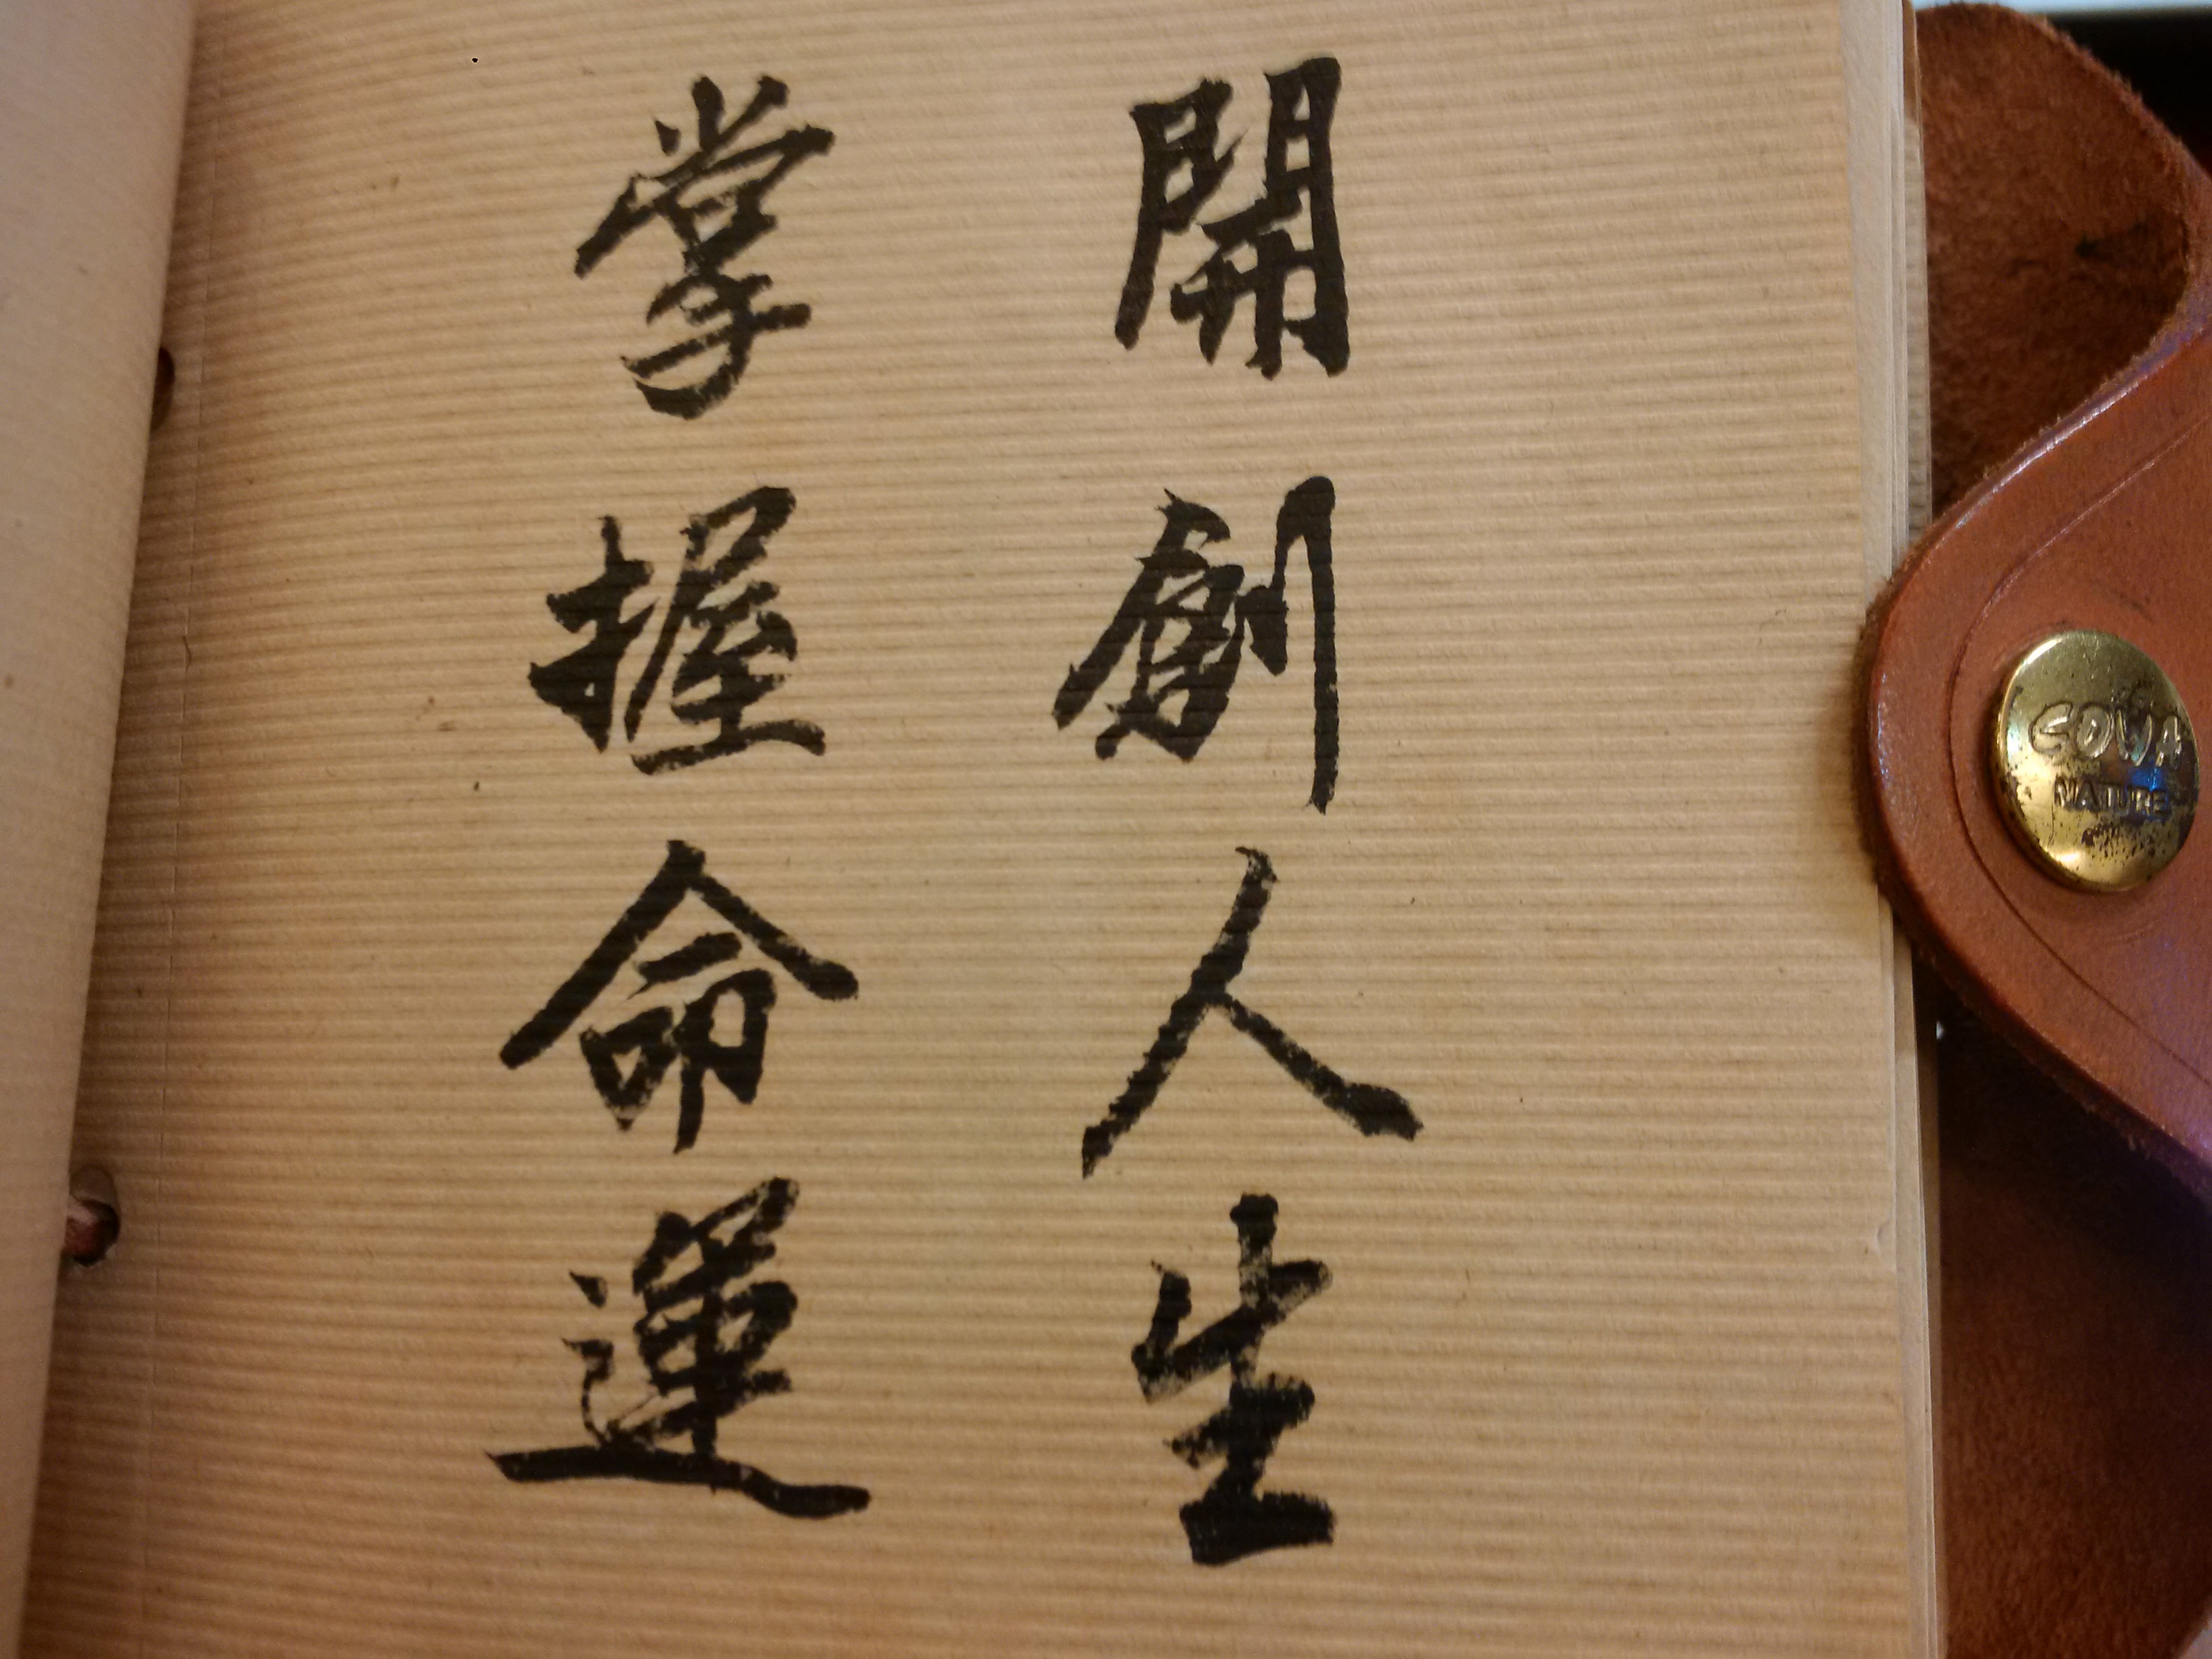 開創人生
掌握命運
GOWA
NATURE